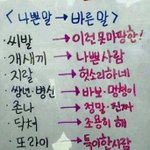 <나쁜말 → 바른말>
· 씨발 → 이런못마땅한!
· 개새끼 → 나쁜사람
· 지랄 → 헛소리하네
· 썅년·병신 → 바보·멍청이
· 존나 → 정말·진짜
· 닥쳐 → 조용히 해
· 또라이 → 특이한사람